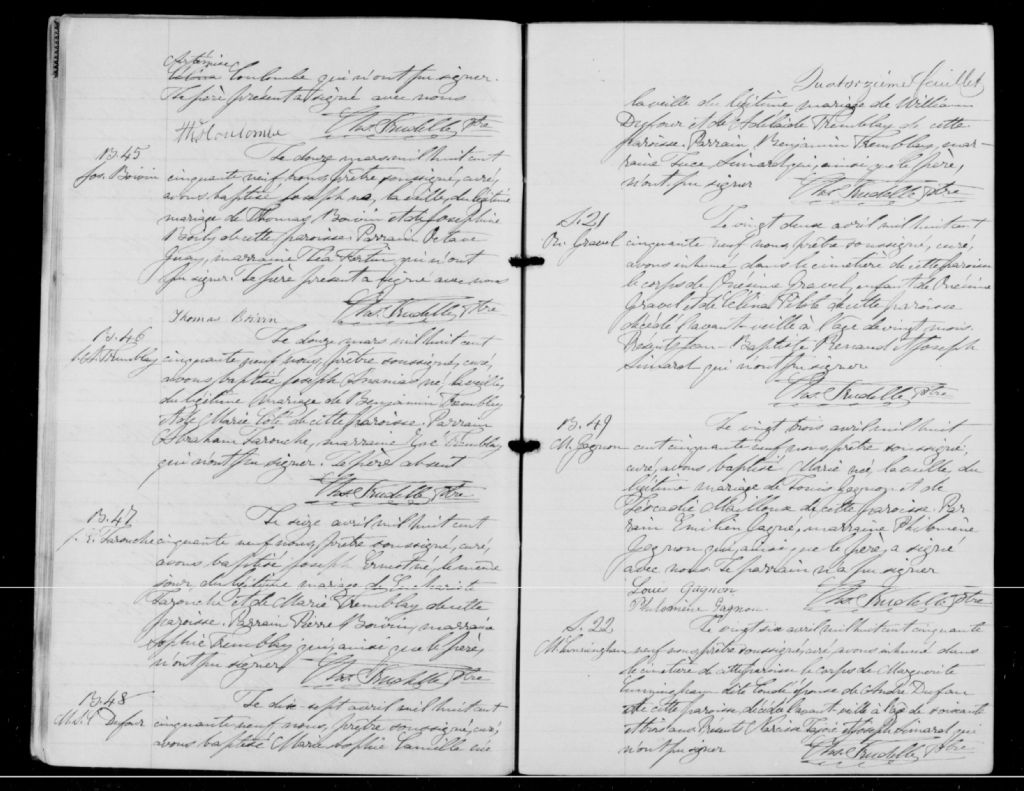 Artémise
Coulombe qui n'ont pu signer.
Le père présent a signé avec nous
Ths Coulombe Ths. Trudelle Ptre
B.45 Le douze mars mil huit cent
Jos. Boivin cinquante neuf, nous, prêtre soussigné, curé,
avons baptisé Joseph né, la veille, du légitime
mariage de Thomas Boivin et de Joséphine
Boily de cette paroisse. Parrain Octave
Guay, marraine Léa Fortin, qui n'ont
pu signer. Le père présent a signé avec nous
Thomas Boivin Ths. Trudelle Ptre
B.46 Le douze mars mil huit cent
Tremblay cinquante neuf nous, prêtre soussigné, curé,
avons baptisé Joseph Ananias né, la veille,
du légitime mariage de Benjamin Tremblay
et de Marie Coté de cette paroisse. Parrain
Abraham Larouche, marraine Tremblay
qui n'ont pu signer. Le père absent
Ths. Trudelle Ptre
B.47 Le seize avril mil huit cent
Larouche cinquante neuf nous, prêtre soussigné, curé,
avons baptisé Joseph Ernest né, le même
jour du légitime mariage de
Larouche et de Marie Tremblay de cette
paroisse. Parrain Pierre Boivin, marraine
Sophie Tremblay qui, ainsi que le père,
n'ont pu signer Ths. Trudelle Ptre
B.48 Le dix-sept avril mil huit cent
Dufour cinquante neuf, nous, prêtre soussigné, curé,
avons baptisé Marie Sophie née
Quatorzième feuillet
la veille du légitime mariage de William
Dufour et de Adelaïde Tremblay de cette
paroisse. Parrain Benjamin Tremblay, mar-
raine Luce Simard qui, ainsi que le père,
n'ont pu signer Ths. Trudelle Ptre
S.21 Le vingt deux avril mil huit cent
On. Gravel cinquante neuf nous prêtre soussigné, curé,
avons inhumé dans le cimetière de cette paroisse
le corps de Onésime Gravel, enfant de Onésime
Gravel et de Célina Pilote de cette paroisse
décédé l'avant-veille à l'age de vingt mois.
Présents Jean-Baptiste Renaud et Joseph
Simard qui n'ont pu signer
Ths. Trudelle Ptre
B.49 Le vingt trois avril mil huit
M. Gagnon cent cinquante neuf nous, prêtre soussigné,
curé, avons baptisé Marie née la veille du
légitime mariage de Louis Gagnon et de
Léocadie Mailloux de cette paroisse. Par-
rain Emilien Gagné, marraine Philomène
Gagnon qui, ainsi que le père, a signé
avec nous. Le parrain n'a pu signer
Louis Gagnon
Philomène Gagnon. Ths. Trudelle Ptre
S.22 Le vingt six avril mil huit cent cinquante
M. Cunningham neuf nous prêtre soussigné, curé avons inhumé dans
le cimetière de cette paroisse le corps de Marguerite
Cunningham épouse de André Dufour
de cette paroisse, décédée l'avant-veille à l'age de soixante
et trois ans. Présents Narcisse et Joseph Simard qui
n'ont pu signer Ths. Trudelle Ptre